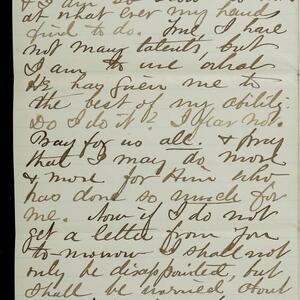 & I am so slow to do
at what ever my hand
find to do. True I have
not many talents, but
I am to use what
He has given me to
the best of my ability.
Do I do it? I fear not.
Pray for us all. & pray
that I may do more
& more for Him who
has done so much for
me. Now if I do not
get a letter from you
to-morrow I shall not
only be disappointed, but
shall be worried about